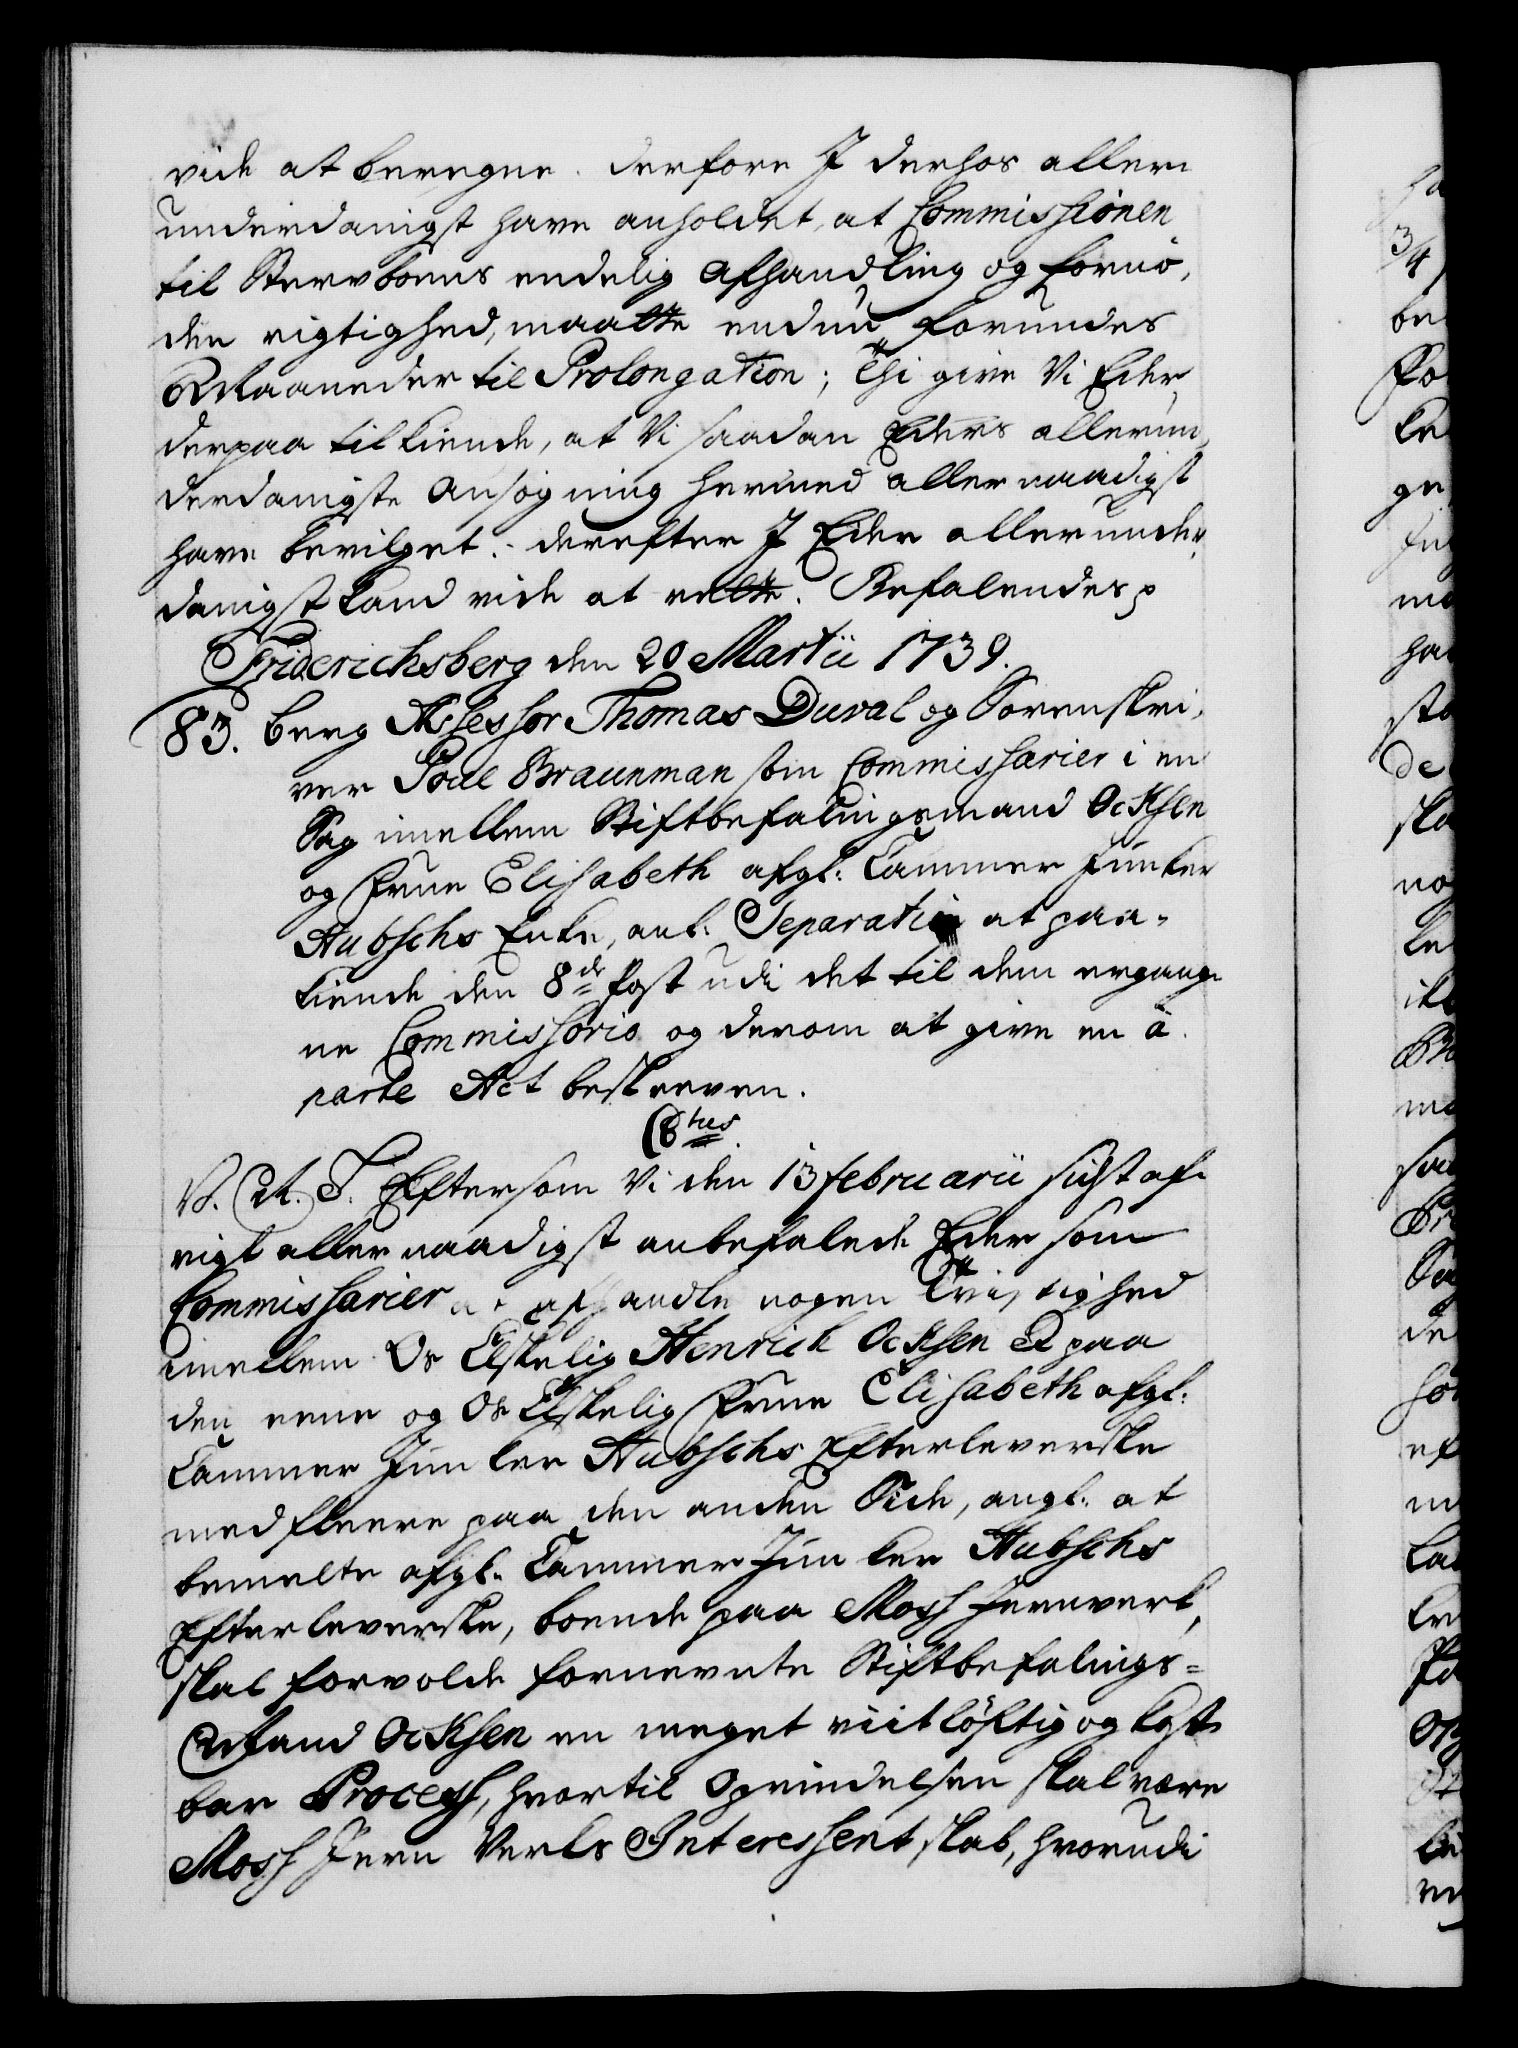 vide at beregne. derfore I derhos aller-
underdanigst have anholdet, at Commissionen
til Stervboens endelig Afhandling og fornö-
den rigtighed, maatte endnu forundes
2 Maaneder til Prolongation; Thi give Vi Eder
derpaa tilkiende, at Vi saadan Eders allerun-
derdanigste Ansögning hermed allernaadigst
have bevilget. derefter I Eder allerunder-
danigst kand vide at rette. Befalendes p
Friderichsberg den 20 Martii 1739.
83. Berg Assessor Thomas Duval og Sorenskri-
ver Poul Braunman som Commissarier i en
Sag imellem Stiftbefalingsmand Ocksen
og Frue Elisabeth afgl. Cammer Junker
Hubschs Enke, anl. Separation at paa-
kiende den 8de Post udi det til dem ergang-
ne Commissorio og derom at give en à
parte Act beskreven.
C 6tus
V. G. T. Eftersom Vi den 13 februarii sidst af-
vigt allernaadigst anbefalede Eder som
Commissarier at afhandle nogen Tvistighed
imellem Os Elskelig Henrich Ocksen p paa
den eene og Os Elskelig Frue Elisabeth afgl.
Cammer Junker Hubschs Efterleverske
med fleere paa den anden Side, angl. at
bemelte afgl. Cammer Junker Hubschs
Efterleverske, boende paa Moss Jernverk,
skal forvolde fornevnte Stiftbefalings-
Mand Ocksen en meget viitlöftig og kost-
bar Process, hvortil Oprindelsen skal være
Moss Jern Verks Interessentskab, hvorudi